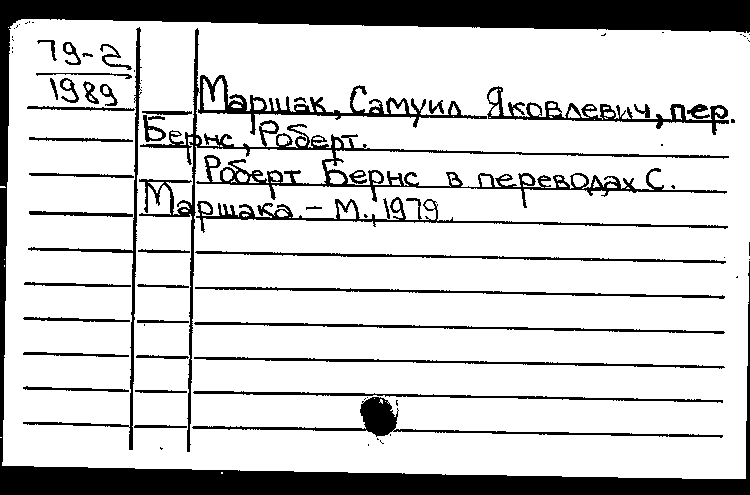 79-2
1989
Маршак, Самуил Яковлевич, пер.
Бернс, Роберт.
Роберт Бернс в переводах С.
Маршака. – М., 1979